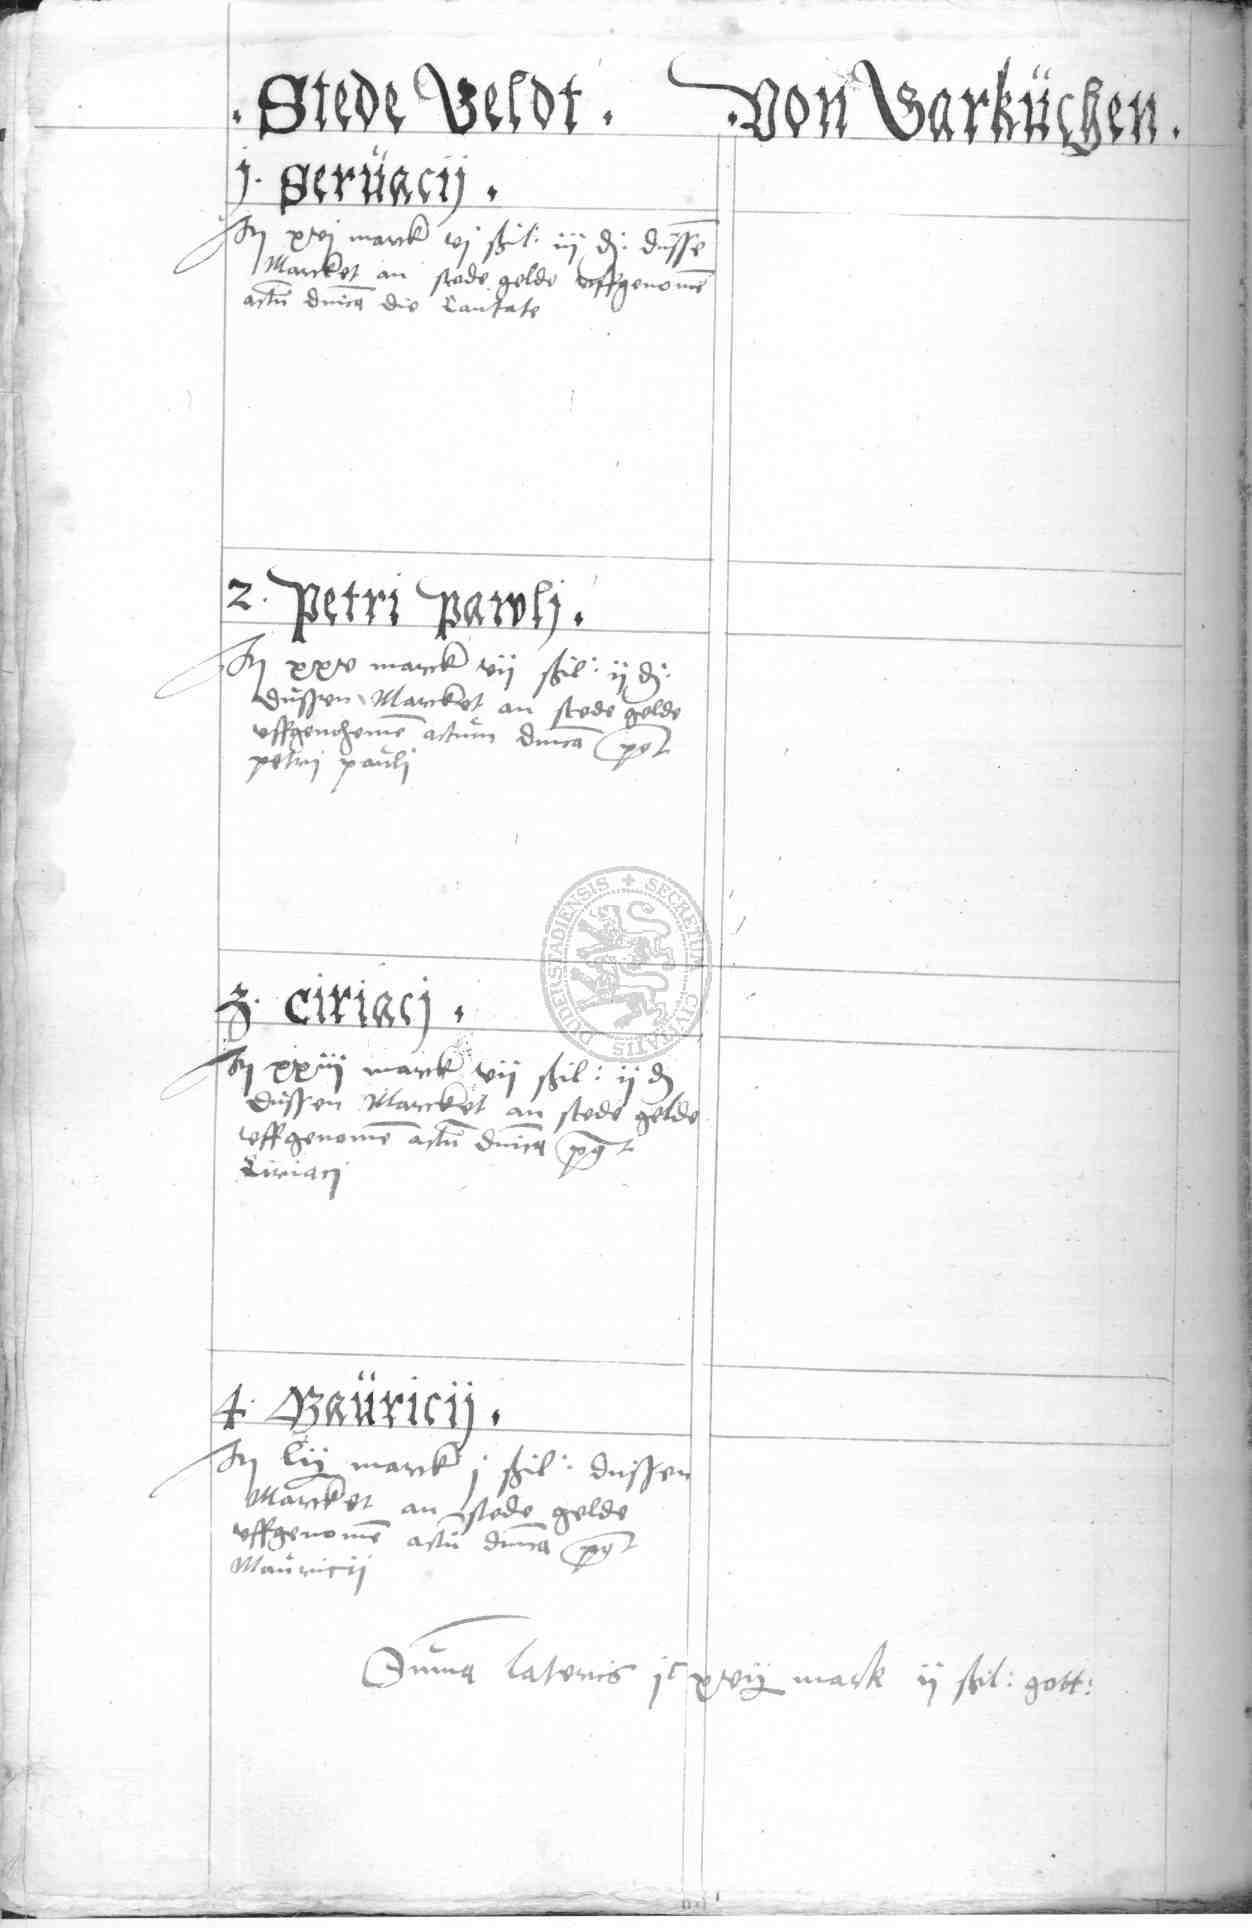 . Stede Geldt .
. Von Garküchen .
j. Serüacij .
Itm xvj marck vj ßil: iij d: dusse
Marcket an stede gelde uffgenome
actu dnica die Cantate
2. Petri Pawlj .
Itm xxv marck vij ßil: ij d:
dussen Marcket an stede gelde
uffgenohmen actum dnica post
petrij paulj
3. Ciriacj .
Itm xxiij marck vij ßil: ij d
dussen Marcket an stede gelde
uffgenome actu dnica post
Ciriacj
4. Maüricij .
Itm lij marck j ßil: dussen
Marcket an stede gelde
uffgenome actu dnica post
Mauricij
Suma lateris jc xvij mark ij ßil: gott:
SECRETUM CIVITATIS DUDERSTADIENSIS